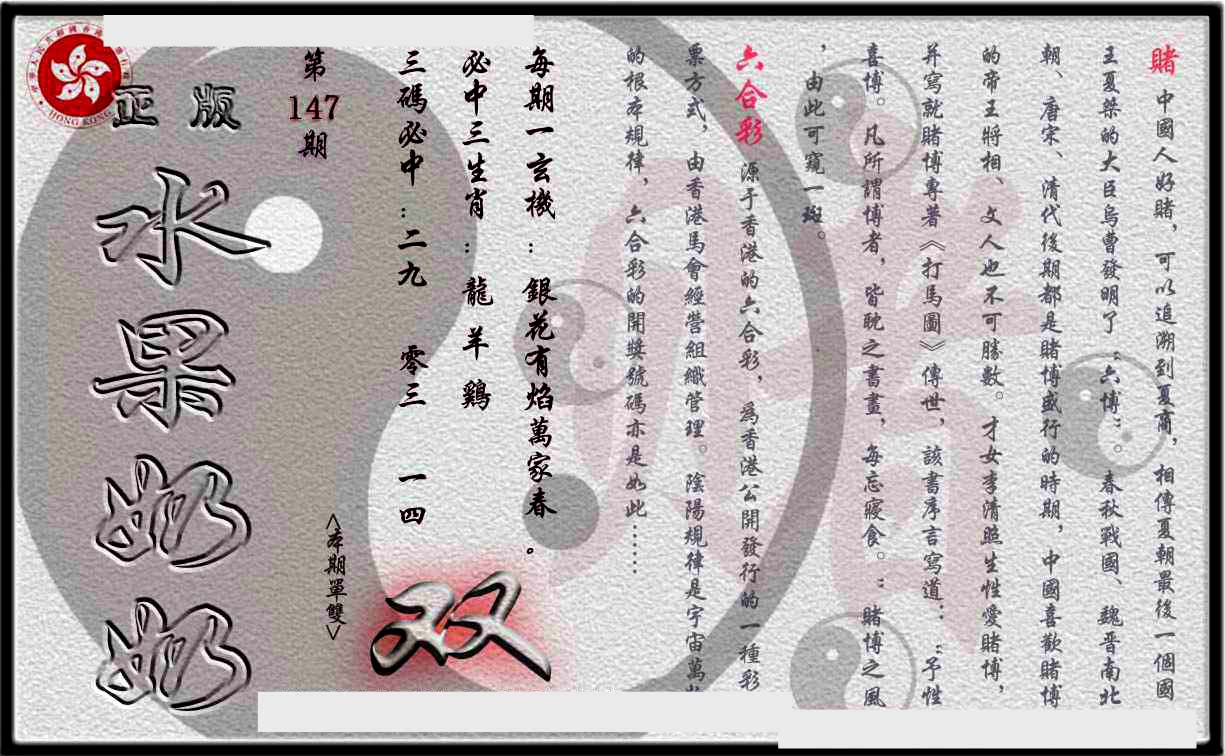 賭 中國人好賭，可以追溯到夏商，相傳夏朝最後一個國
王夏桀的大臣烏曹發明了“六博”。春秋戰國、魏晋南北
朝、唐宋、清代後期都是賭博盛行的時期，中國喜歡賭博
的帝王將相、文人也不可勝數。才女李清照生性愛賭博，
并寫就賭博專著《打馬圖》傳世，該書序言寫道：“予性
喜博。凡所謂博者，皆耽之書畫，每忘寢食。”賭博之風
，由此可窺一斑。
六合彩 源于香港的六合彩，為香港公開發行的一種彩
票方式，由香港馬會經營組織管理。陰陽規律是宇宙萬
的根本規律，六合彩的開獎號碼亦是如此……
每期一玄機：銀花有焰萬家春。
必中三生肖：龍羊鷄
三碼必中：二九 零三 一四
<本期單雙>
双
第147期
正版
水果奶奶
HONG KONG